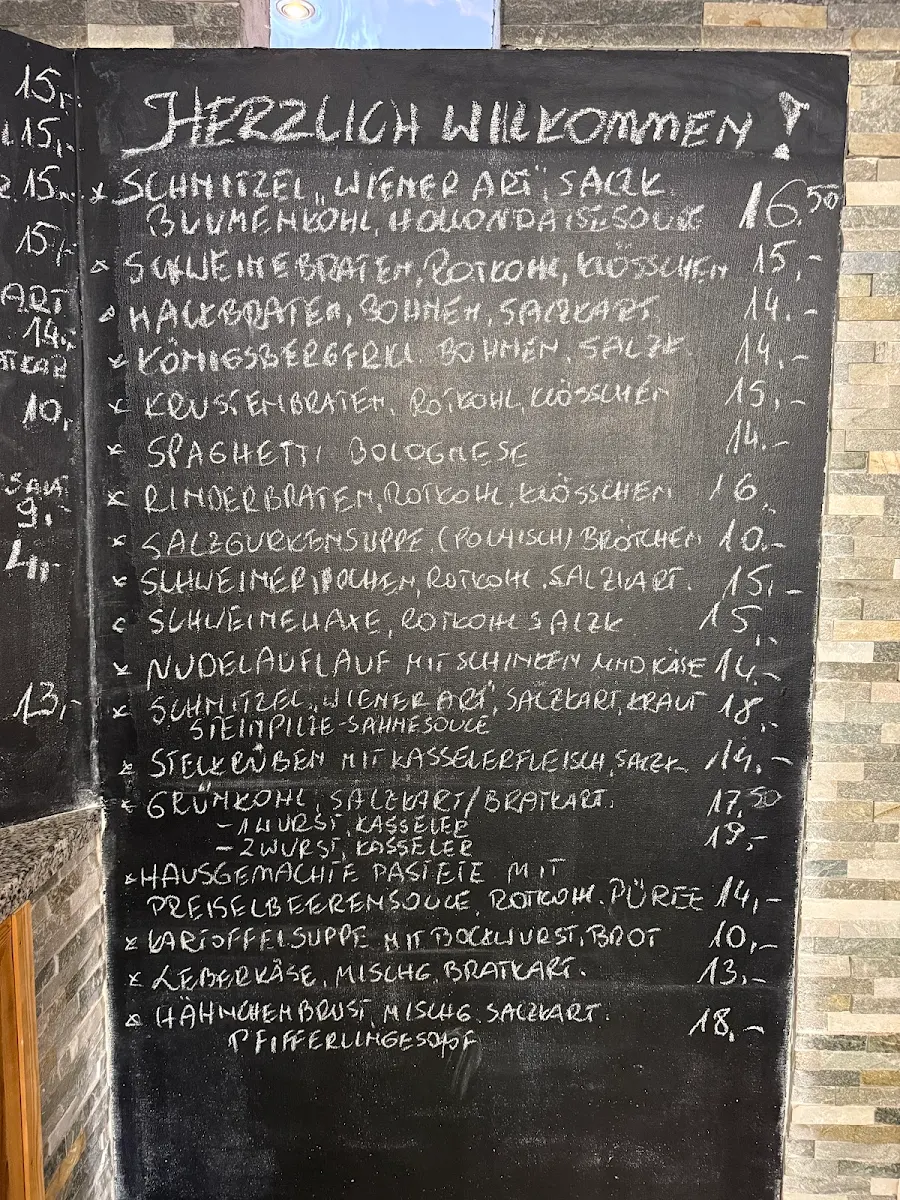 15,-
15,-
15,-
15,-
ART
14,-
10,
9,-
4,-
13,-
HERZLICH WILLKOMMEN !
SCHNITZEL „WIENER ART", SALZK. 16,50
BLUMENKOHL, HOLLONDAISESOUCE
SCHWEINEBRATEN, ROTKOHL, KLÖSSCHEN 15,-
HACKBRATEN, BOHNEN, SALZKART. 14.-
KÖNIGSBERGERKL. BOHNEN, SALZK. 14,-
KRUSTENBRATEN, ROTKOHL, KLÖSSCHEN 15,-
SPAGHETTI BOLOGNESE 14.-
RINDERBRATEN, ROTKOHL, KLÖSSCHEN 16,
SALZGURKENSUPPE, (POLNISCH) BRÖTCHEN 10.-
SCHWEINERIPPCHEN, ROTKOHL. SALZKART. 15,-
SCHWEINEHAXE, ROTKOHL SALZK. 15,-
NUDELAUFLAUF MIT SCHINKEN UND KÄSE 14,-
SCHNITZEL „WIENER ART", SALZKART, KRAUT 18,-
STEINPILZE-SAHNESOUCE
STECKRÜBEN MIT KASSELERFLEISCH, SALZK. 14.-
GRÜNKOHL, SALZKART/BRATKART. 17,50
- 1 WURST, KASSELER
- 2 WURST, KASSELER 19,-
HAUSGEMACHTE PASTETE MIT
PREISELBEERENSOUCE, ROTKOHL. PÜREE 14,-
KARTOFFELSUPPE MIT BOCKWURST, BROT 10,-
LEBERKÄSE, MISCHG. BRATKART. 13,-
HÄHNCHENBRUST, MISCHG. SALZKART. 18,-